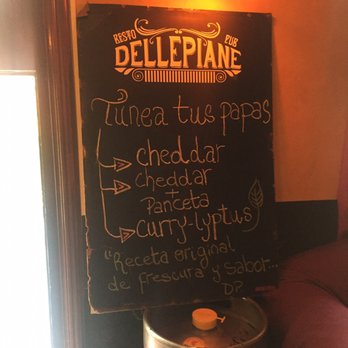 RESTO PUB
DELLEPIANE
Tunea tus papas
cheddar
cheddar
+
Panceta
curry-lyptus
"Receta original
de frescura y sabor...
DP